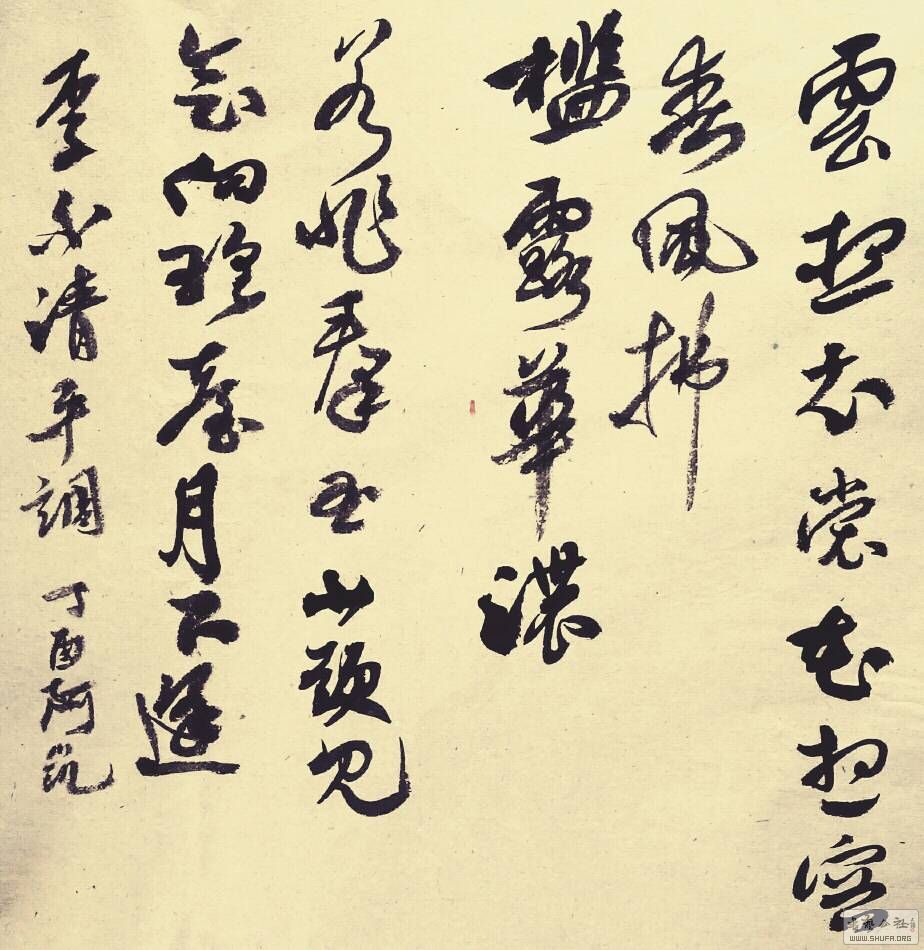 雲想衣裳花想容
春風拂
檻露華濃
若非羣玉山頭見
會向瑤臺月下逢
李白清平調 丁酉阿凱
WWW.SHUFA.ORG